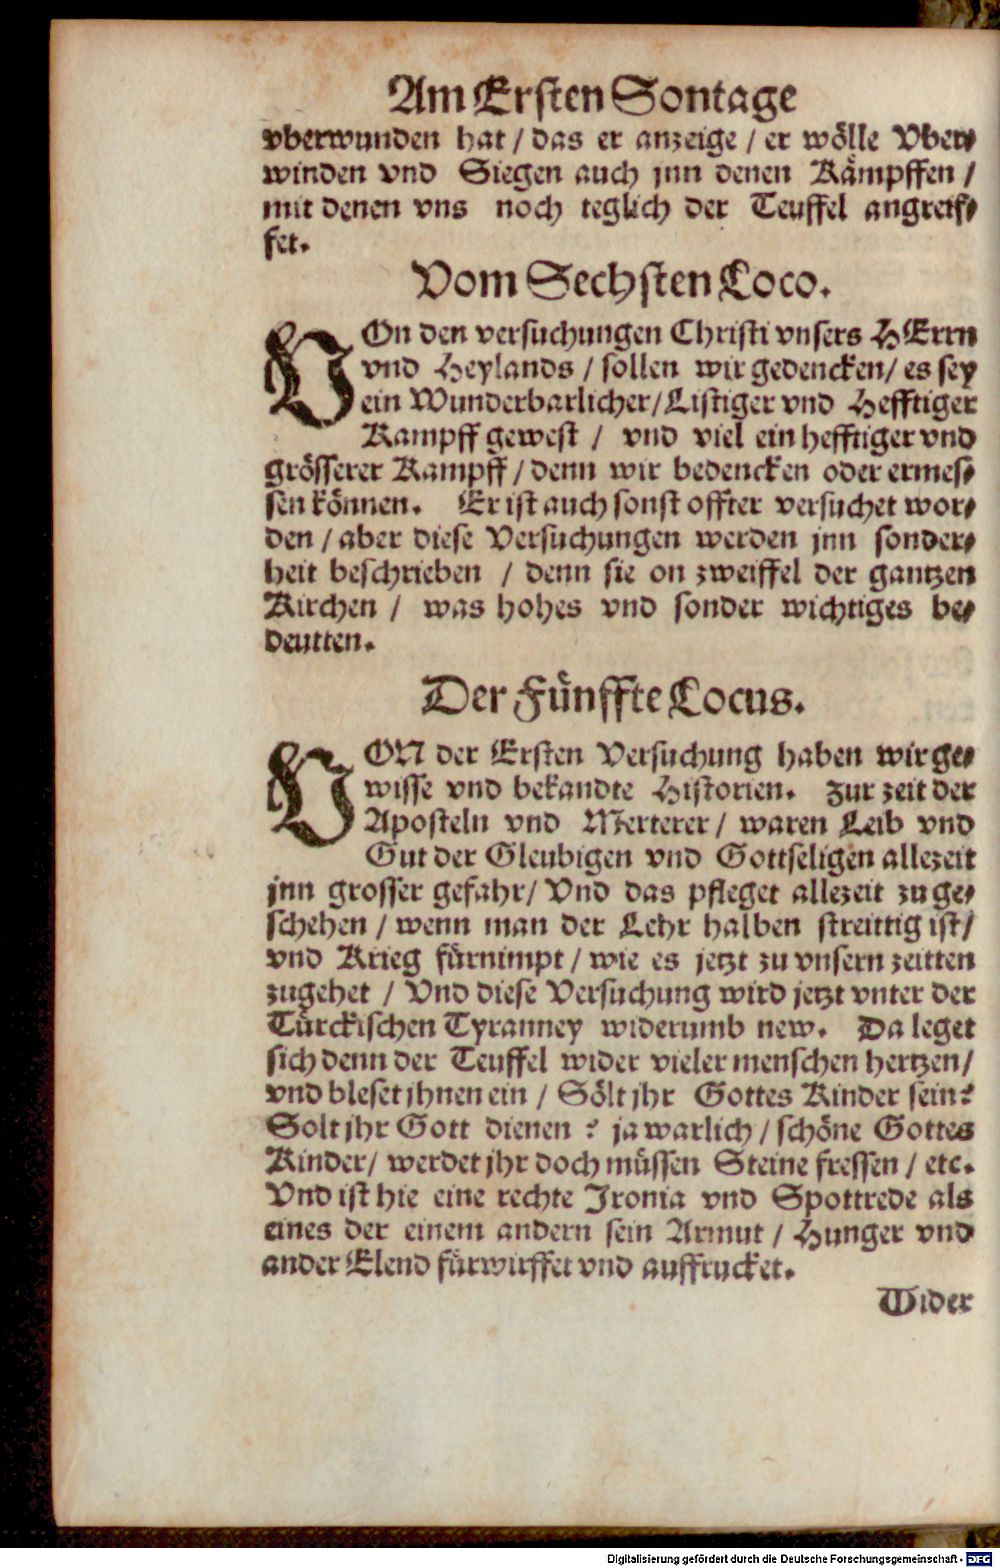 Am Ersten Sontage
vberwunden hat / das er anzeige / er wölle Vber⸗
winden vnd Siegen auch jnn denen Kämpffen /
mit denen vns noch teglich der Teuffel angreif⸗
fet.
Vom Sechsten Loco.
VOn den versuchungen Christi vnsers HErrn
vnd Heylands / sollen wir gedencken / es sey
ein Wunderbarlicher / Listiger vnd Hefftiger
Kampff gewest / vnd viel ein hefftiger vnd
grösserer Kampff / denn wir bedencken oder ermes⸗
sen können. Er ist auch sonst offter versuchet wor⸗
den / aber diese Versuchungen werden jnn sonder⸗
heit beschrieben / denn sie on zweiffel der gantzen
Kirchen / was hohes vnd sonder wichtiges be⸗
deutten.
Der Fünffte Locus.
VON der Ersten Versuchung haben wir ge⸗
wisse vnd bekandte Historien. Zur zeit der
Aposteln vnd Merterer / waren Leib vnd
Gut der Gleubigen vnd Gottseligen allezeit
jnn grosser gefahr / Vnd das pfleget allezeit zu ge⸗
schehen / wenn man der Lehr halben streittig ist /
vnd Krieg fürnimpt / wie es jetzt zu vnsern zeitten
zugehet / Vnd diese Versuchung wird jetzt vnter der
Türckischen Tyranney widerumb new. Da leget
sich denn der Teuffel wider vieler menschen hertzen /
vnd bleset jhnen ein / Sölt jhr Gottes Kinder sein?
Solt jhr Gott dienen? ja warlich / schöne Gottes
Kinder / werdet jhr doch müssen Steine fressen / etc.
Vnd ist hie eine rechte Ironia vnd Spottrede als
eines der einem andern sein Armut / Hunger vnd
ander Elend fürwirffet vnd auffrucket.
Wider
Digitalisierung gefördert durch die Deutsche Forschungsgemeinschaft - DFG